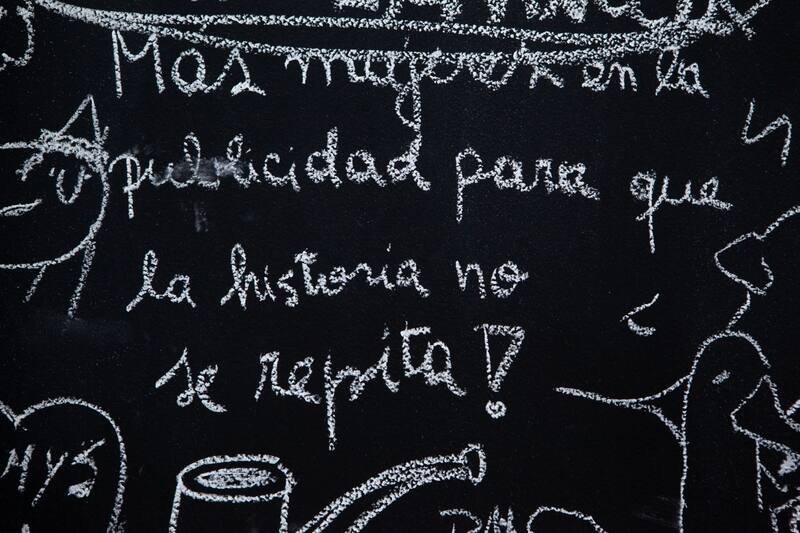 Más mujeres en la
publicidad para que
la historia no
se repita!
MYS